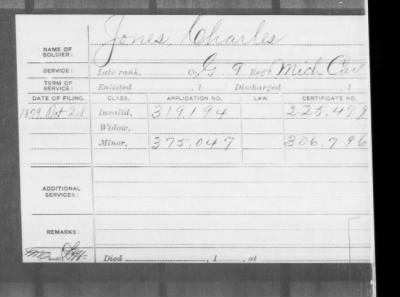 Jones, Charles
NAME OF SOLDIER:
SERVICE: Late rank, Co. G. 9 Reg't Mich Cav
TERM OF SERVICE: Enlisted , 1 Discharged , 1
DATE OF FILING. CLASS. APPLICATION NO. LAW. CERTIFICATE NO.
1879 Oct 28 Invalid, 319,194 225,479
Widow,
Minor, 375,047 306,796
ADDITIONAL SERVICES:
REMARKS:
Died , 1 , at